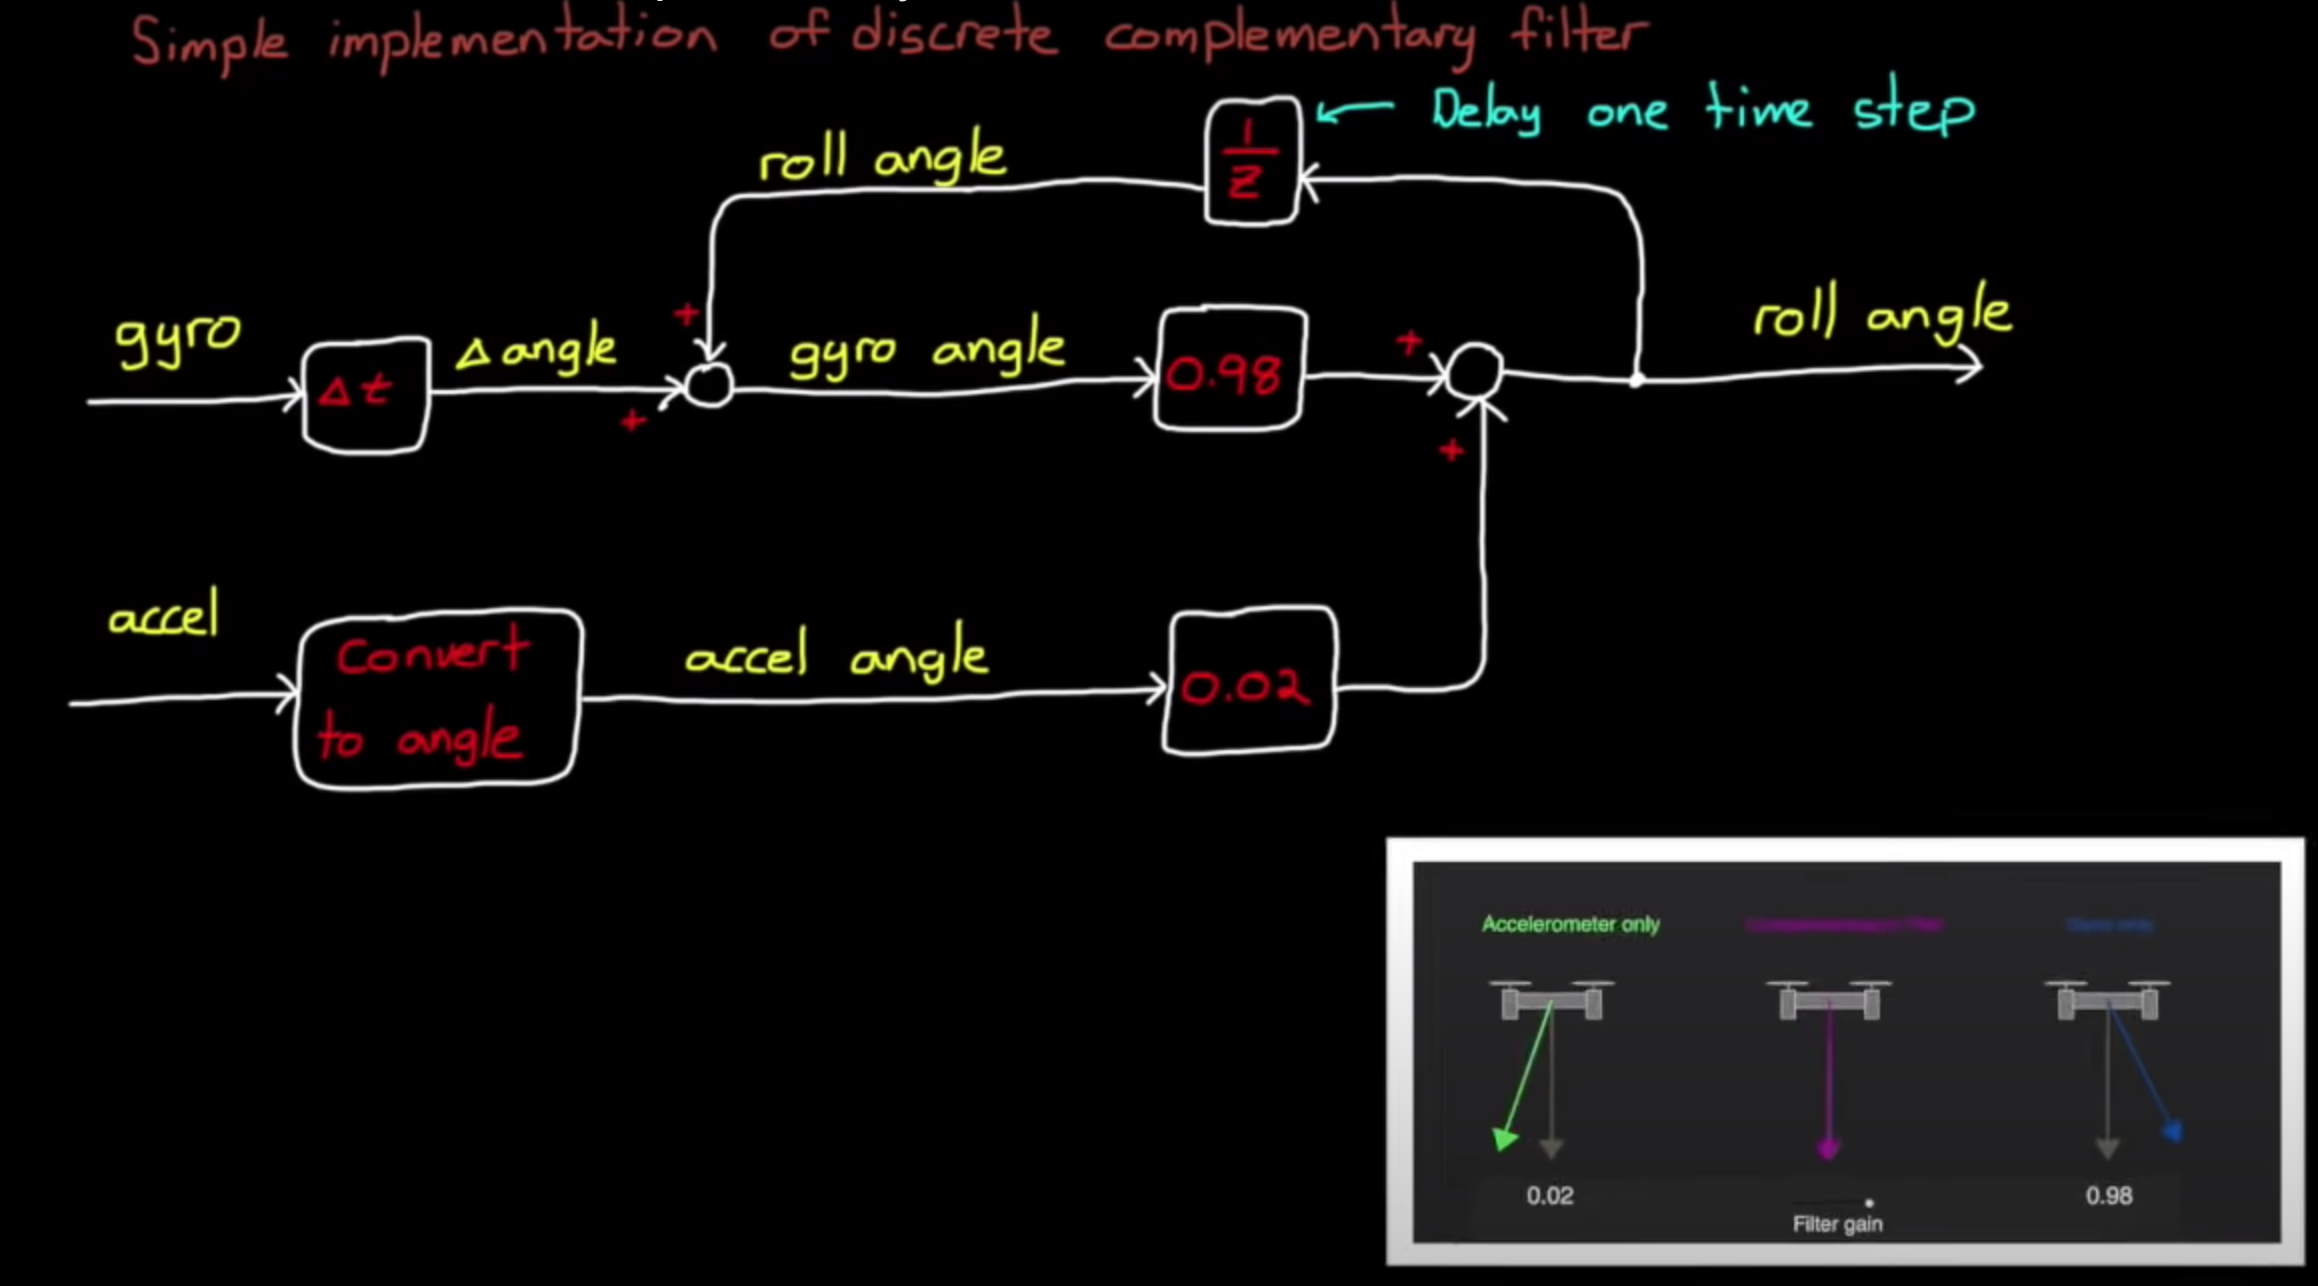 Simple implementation of discrete complementary filter
1
z
← Delay one time step
roll angle
gyro
Δt
Δ angle
+
+
gyro angle
0.98
+
+
roll angle
accel
Convert
to angle
accel angle
0.02
Accelerometer only
0.02
0.98
Filter gain